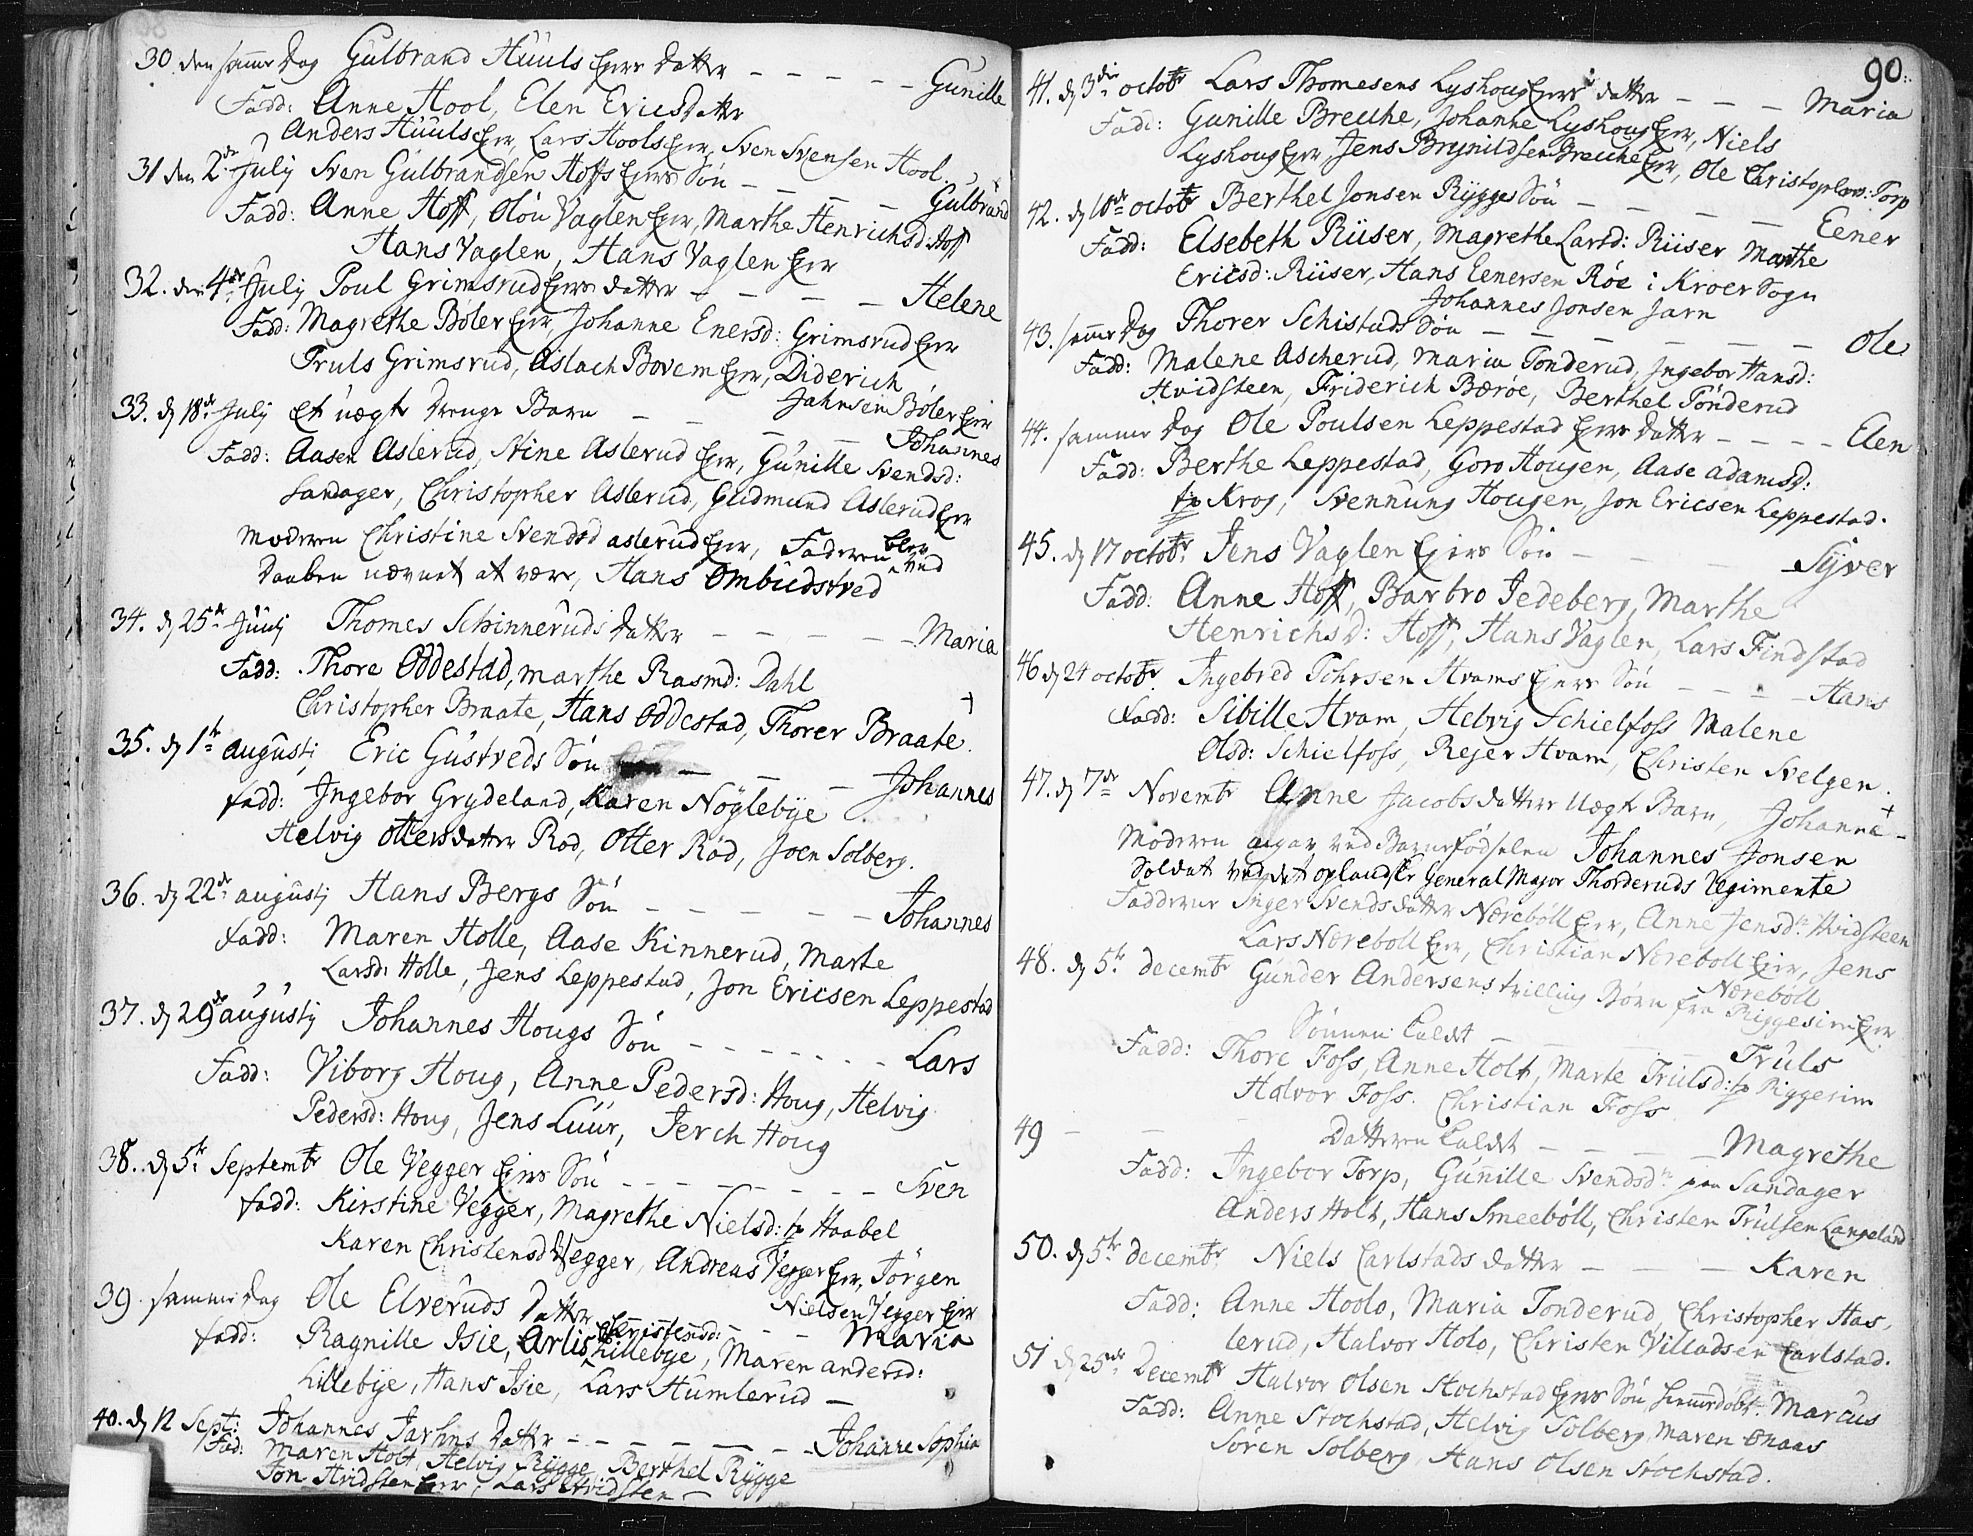 30. den samme Dag Gulbrand Huuls Eyers Datter - - - - - Gunille
Fadd: Anne Hool, Elen Ericsdatter
Anders Huuls Eyer, Lars Hools Eyer, Sven Svensen Hool.
31 den 2de July Sven Gulbrandsen Hoffs Eyers Søn - - - - Gulbrand
Fadd: Anne Hoff, Oløu Vaglen Eyer, Marthe Henrichsd: Hoff
Hans Vaglen, Hans Vaglen Eyer
32. den 4de July Poul Grimsrud Eyers datter - - - - Helene
Fadd: Magrethe Bøler Eyer, Johanne Enersd: Grimsrud Eyer
Truls Grimsrud, Aslach Bovem Eyer, Diderich
Jahnsen Bøler Eyer
33. d 18de July et uægte Drenge Barn - - - - Johannes
Fadd: Aasen Aslerud, Stine Aslerud Eyer, Gunille Svendsd:
Sandager, Christopher Aslerud, Gudmund Aslerud Eyer
Moderen Christine Svendsd Aslerud Eyer, Faderen blev ved
Daaben nævnet at være, Hans Ombudstved
34. d 25de July Thomes Schinneruds Datter - - - - - Maria
Fadd: Thore Oddestad, Marthe Rasmd: Dahl
Christopher Braate, Hans Oddestad, Thorer Braate. +
35. d 1te augusti Eric Gustveds Søn - - - Johannes
Fadd: Ingebor Grydeland, Karen Nøglebye
Helvig Ottersdatter Rød, Otter Rød, Joen Solberg.
36. d 22de augusti Hans Bergs Søn - - - - - - Johannes
Fadd: Maren Holle, Aase Kinnerud, Marte
Larsd: Holle, Jens Leppestad, Jon Ericsen Leppestad
37. d 29de augusti Johannes Hougs Søn - - - - - - - Lars
Fadd: Viborg Houg, Anne Pedersd: Houg, Helvig
Pedersd: Houg, Jens Luur, Jerch Houg
38. d 5te Septembr Ole Vegger Eyers Søn - - - - - - - - Sven
Fadd: Kirstine Vegger, Magrethe Nielsd: Haabel
Karen Christensd Vegger, Andreas Vegger Eyer, Jørgen
Nielsen Vegger Eyer
39. samme dag Ole Elveruds Datter - - - Maria
Fadd: Ragnille Isie, Arlis Christensd: Lillebye, Maren andersd:
Lillebye, Hans Isie, Lars Humlerud -
40. d 12 Sept: Johannes Jarhns Datter - - - - - - - Johanne Sophia
Fad: Maren Holt, Helvig Rygge, Berthel Rygge
Jon Hvidsten Eyer, Lars Hvidsten -
90.
41. d 3die octobr Lars Thomesens Lyshoug Eyers datter - - - Maria
Fadd: Gunille Breche, Johanne Lyshoug Eyer, Niels
Lyshoug Eyer, Jens Brynildsen Breche Eyer, Ole Christophers: Torp
42. d 10de octobr Berthel Jonsen Rygges Søn - - - - - Eener
Fadd: Elsebeth Riiser, Magrethe Larsd: Riiser Marthe
Ericsd: Riiser, Hans Eenersen Røe i Kroer Sogn
Johannes Jonsen Jarn
43. samme Dag Thorer Schistuds Søn - - - - - - Ole
Fadd: Malene Ascherud, Maria Tonderud, Ingebor Hansd:
Hvidsteen, Friderich Bærøe, Berthel Tønderud
44. samme Dag Ole Poulsen Leppestad Eyers Datter - - - - Elen
Fadd: Berthe Leppestad, Goro Hougen, Aase adamsd:
Krog, Svennung Hougen, Jon Ericsen Leppestad.
45. d 17 octobr Jens Vaglen Eyers Søn - - - Syver
Fadd: Anne Hoff, Barbro Jedeberg, Marthe
Henrichsd: Hoff, Hans Vaglen, Lars Findstad
46 d 24 octobr Ingebred Tohrsen Hvams Eyers Søn - - - - Hans
Fadd: Sibille Hvam, Helvig Schielfoss Malene
Olsd: Schielfoss, Rejer Hvam, Christen Svelgen.
47. d 7de Novembr Anne Jacobsdatters Uægte Barn, Johanna +
Moderen angav ved Barnefødselen Johannes Jonsen
Soldat ved det oplandske General Major Thorderuds Regimente
Faddere Inger Svendsdatter Nærebøll Eyer, Anne Jensdr Hvidsteen
Lars Nærebøll Eyer, Christian Nærebøll Eyer, Jens
Nærebøll
48. d 5te decembr Gunder Andersens tvilling Børn fra Riggesiin Eyer
Sønnen kaldt - - - - Truls
Fadd: Thore Foss, Anne Holt, Marte Trulsd: Riggesiin
Halvor Foss. Christian Foss
49 - - - Datteren kaldet - - - - Magrethe
Fadd: Ingebor Torp, Gunille Svendsdr paa Sandager
Anders Holt, Hans Smeebøll, Christen Trulsen Langeland
50. d 5te decembr Niels Carlstads datter - - - Karen
Fadd: Anne Hoolo, Maria Tonderud, Christopher Has-
lerud, Halvor Holo, Christen Villadsen Carlstad.
51 d 25de Decembr Halvor Olsen Stochstad Eyers Søn, hiemedøbt. Marcus
Fadd: Anne Stochstad, Helvig Solberg, Maren Onaas
Søren Solberg, Hans Olsen Stochstad.